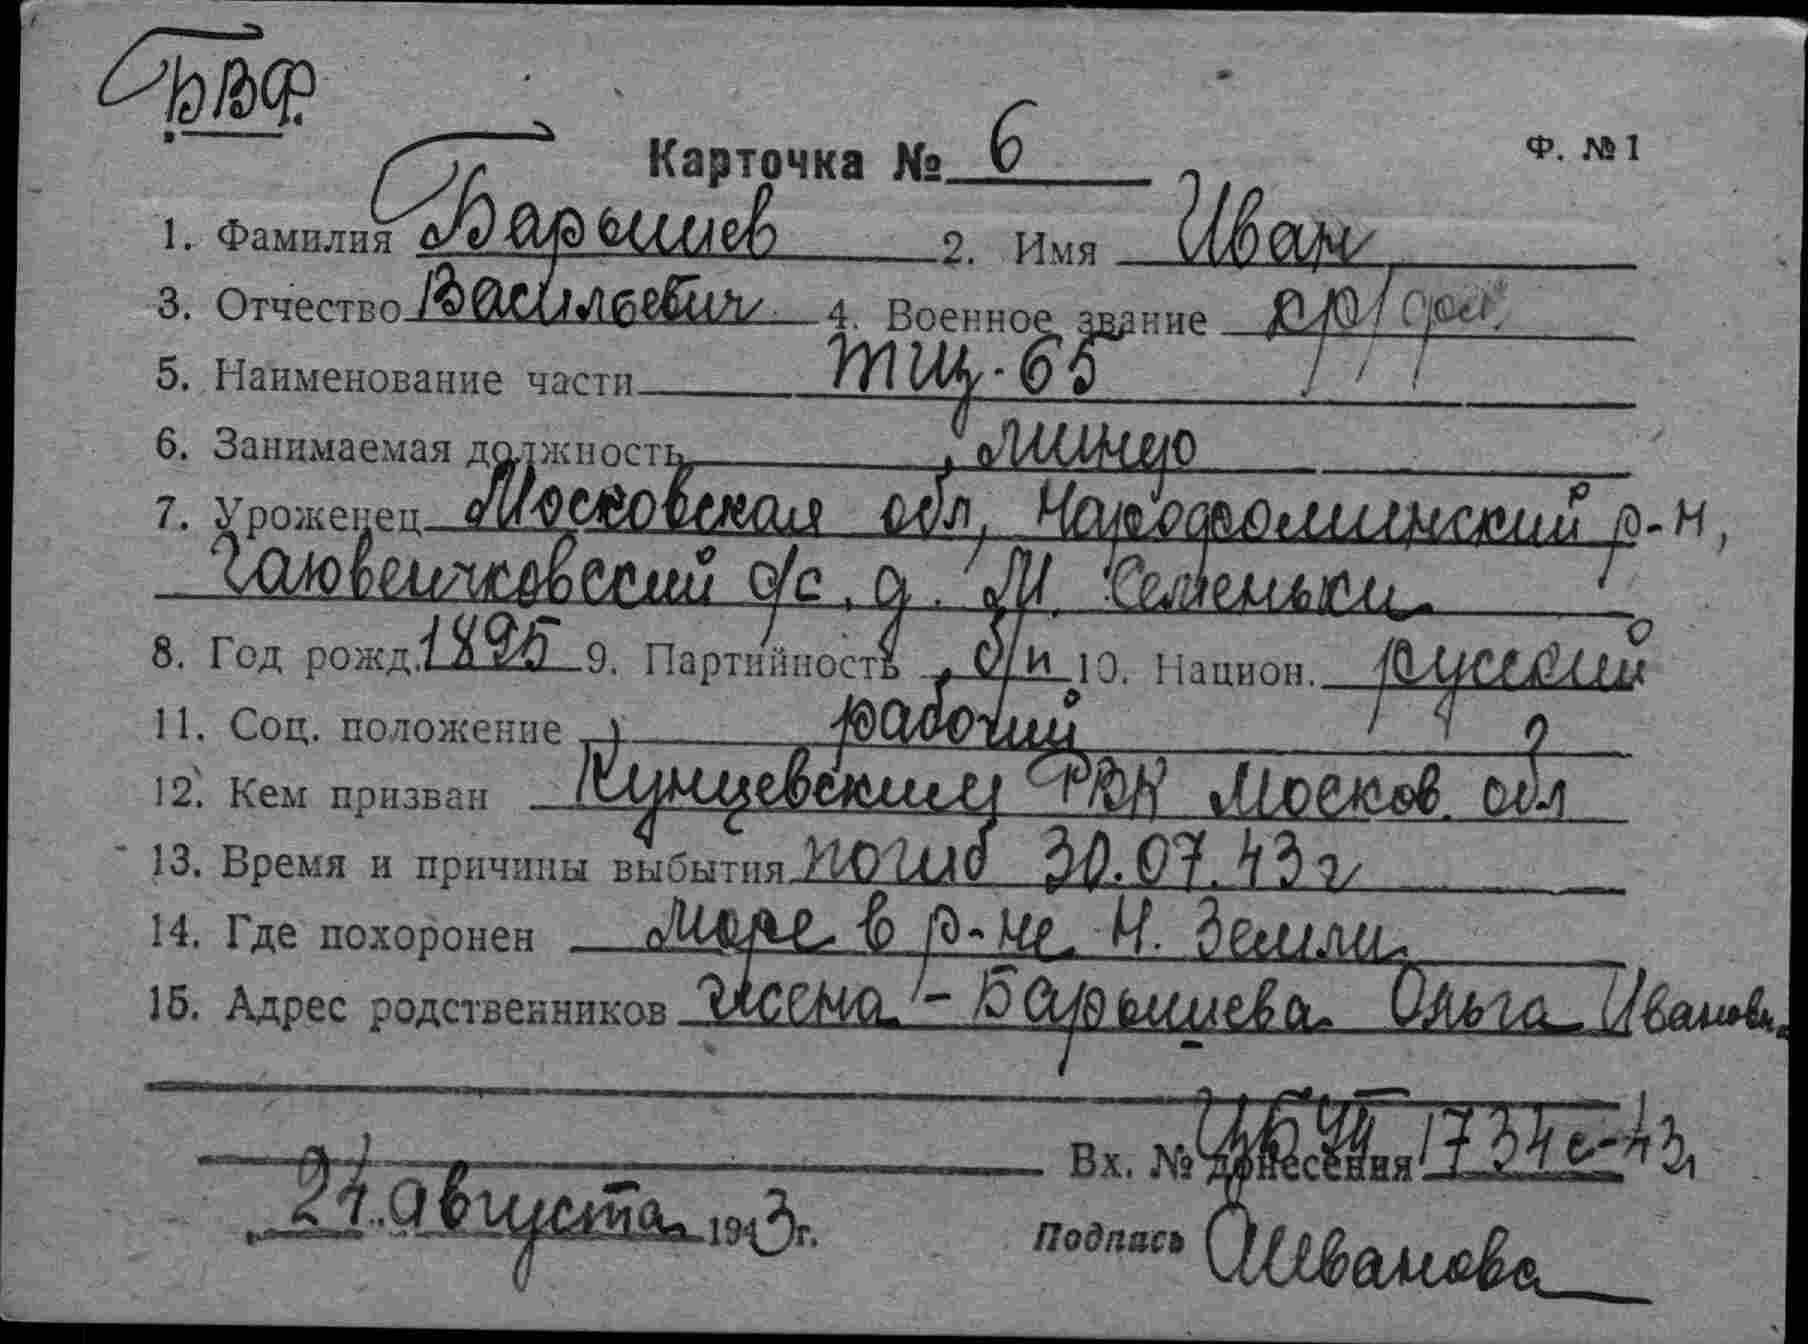 БВФ.
Карточка № 6 Ф. №1
1. Фамилия Барышев 2. Имя Иван
3. Отчество Васильевич 4. Военное звание кр/
5. Наименование части ТЩ-65
6. Занимаемая должность минер
7. Уроженец Московская обл, Нарофоминский р-н,
с/с, д. М. Семеньки
8. Год рожд. 1895 9. Партийность б/п 10. Национ. русский
11. Соц. положение рабочий
12. Кем призван Кунцевским РВК Москов. обл
13. Время и причины выбытия погиб 30.07.43г
14. Где похоронен море в р-не Н. Земли
15. Адрес родственников жена - Барышева Ольга Ивановн.
Вх. № донесения 1734с-43г
24 августа 1943г. Подпись Иванова